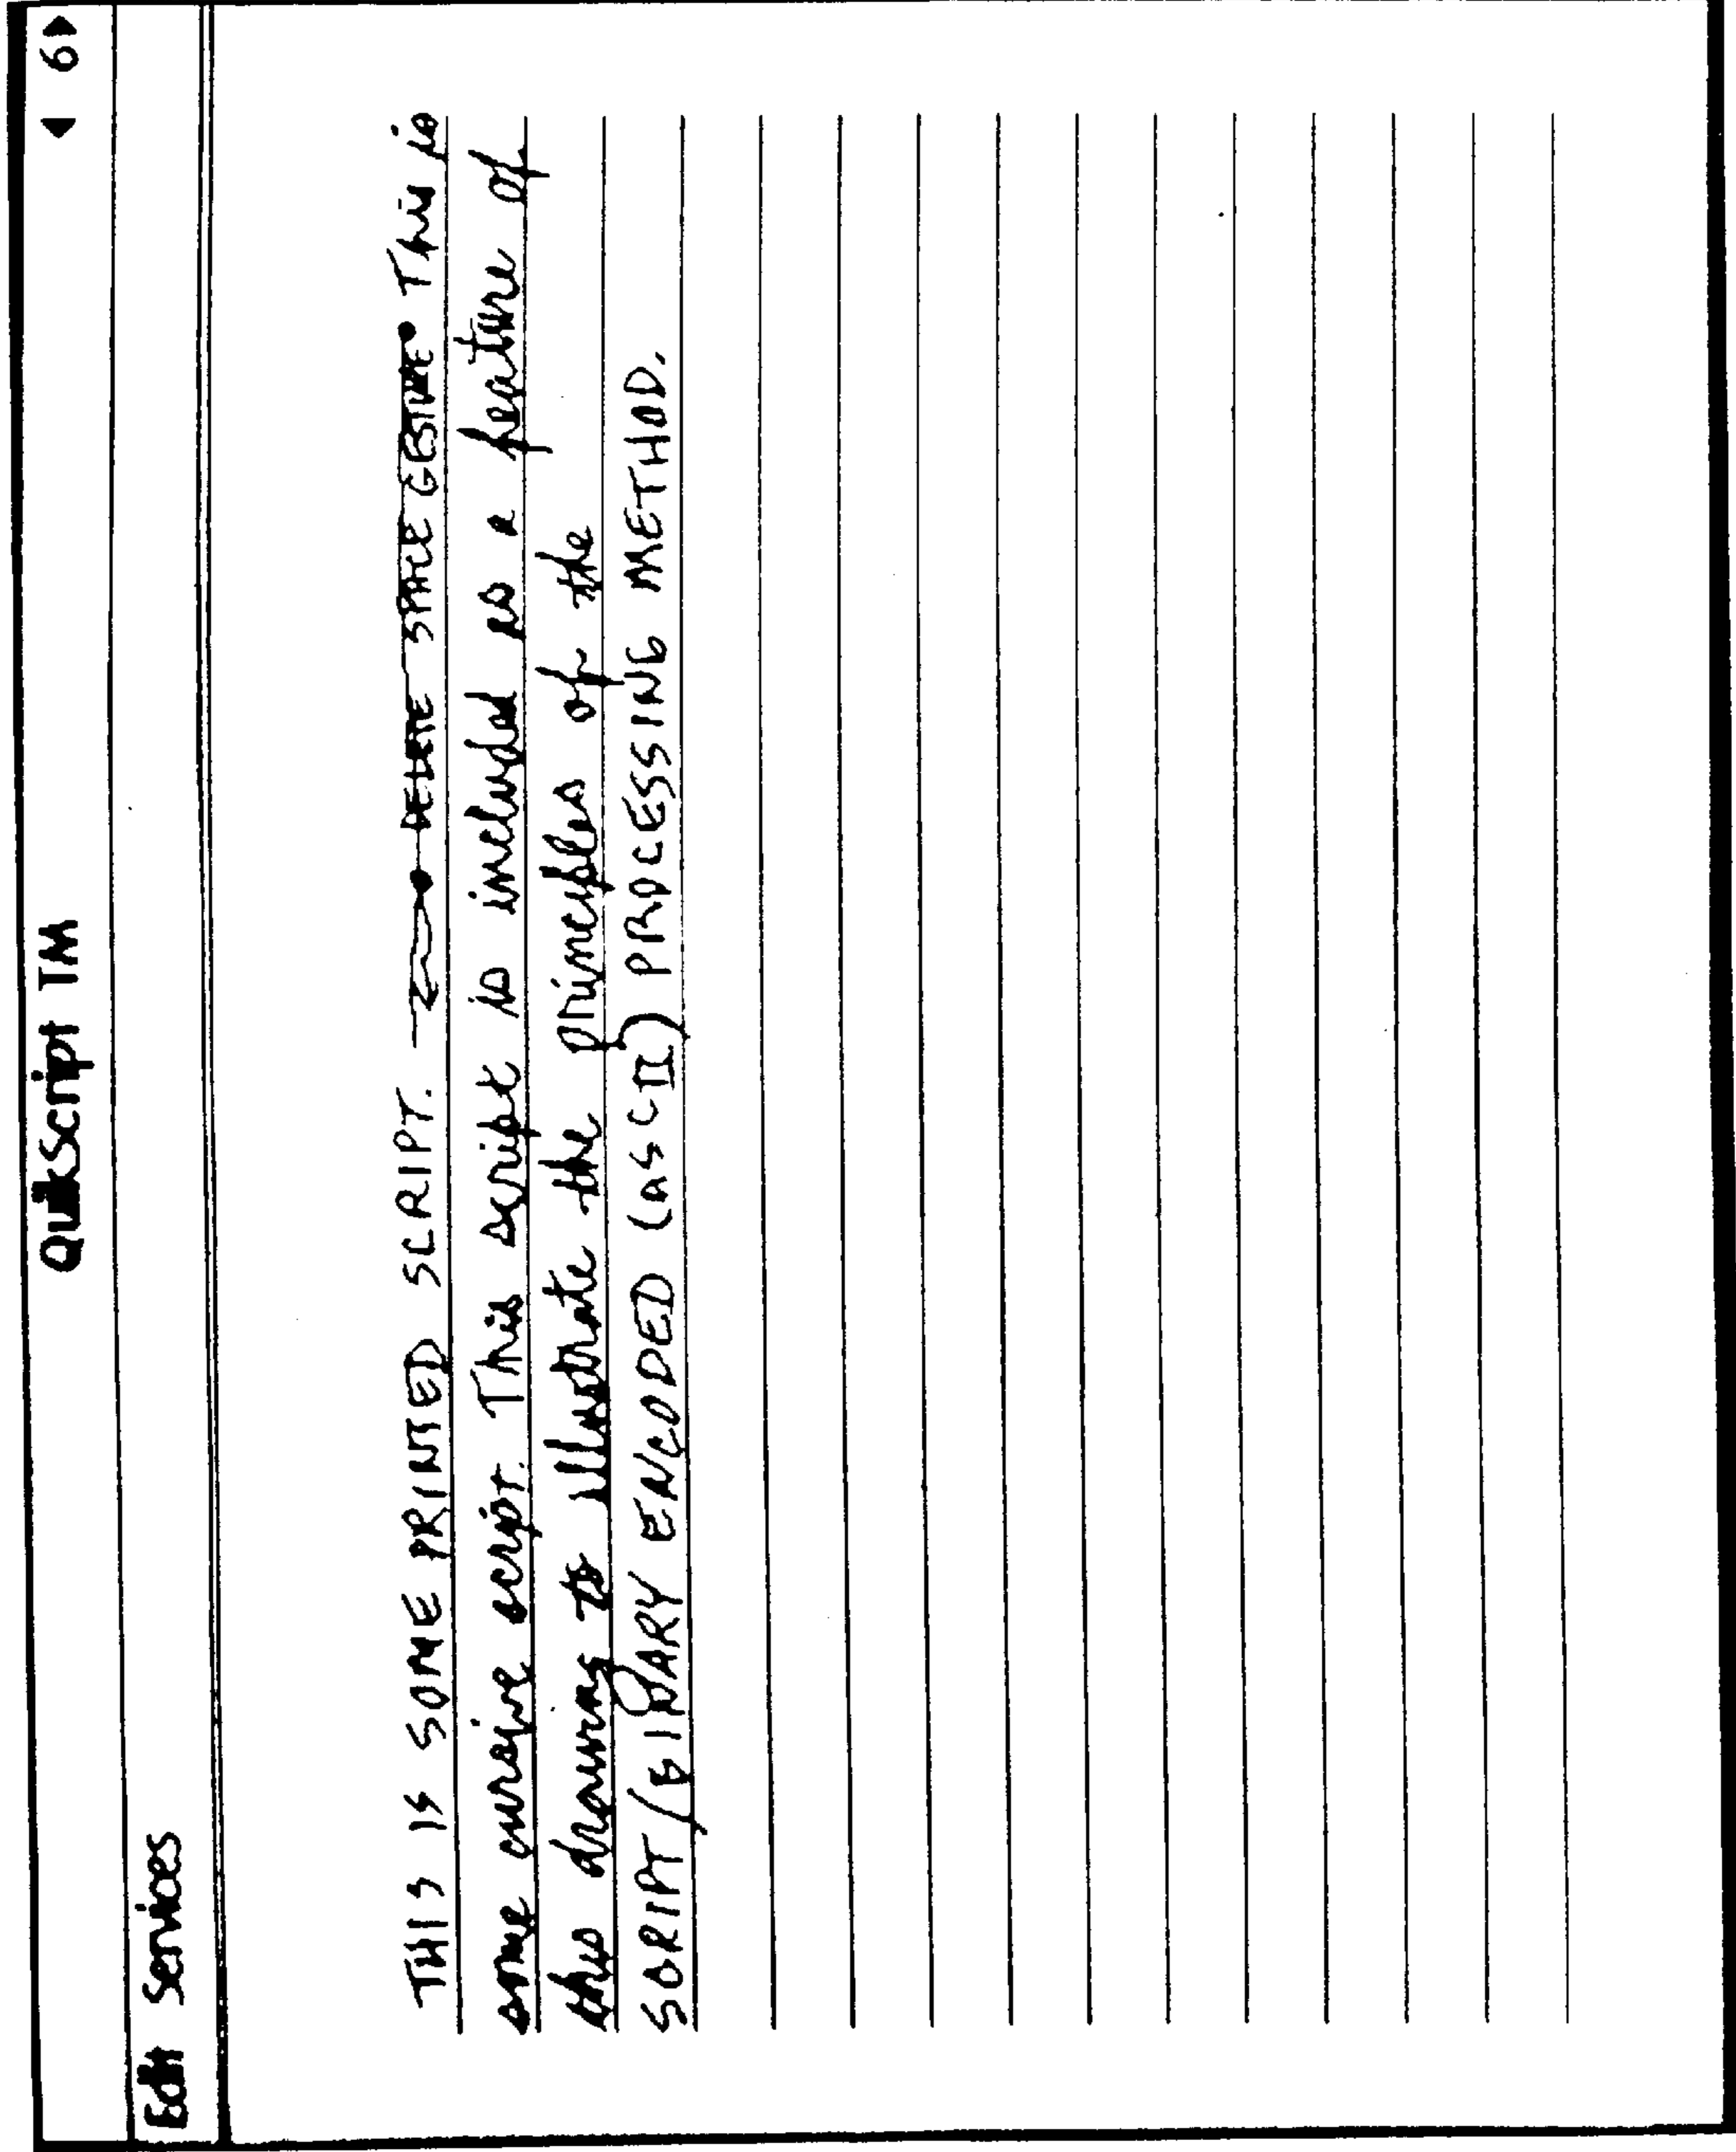 QuikScript TM ◀ 6▶
Edit Services
THIS IS SOME PRINTED SCRIPT. DELETE SPACE GESTURE This is
some cursive script. This script is included as a feature of
this drawing to illustrate the principles of the
SCRIPT/BINARY ENCODED (ASCII) PROCESSING METHOD.